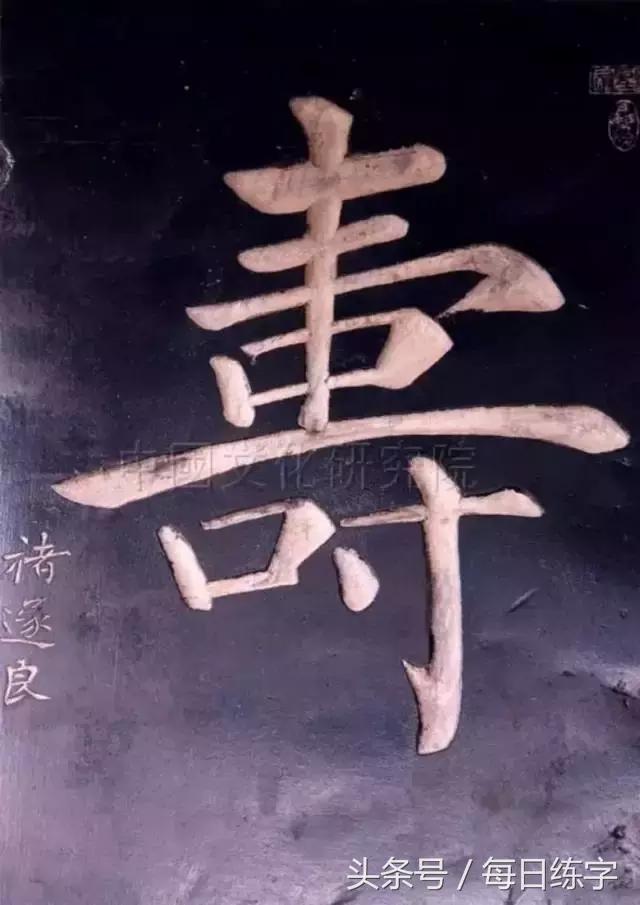 壽
中國文化研究院
褚遂良
头条号 / 每日练字